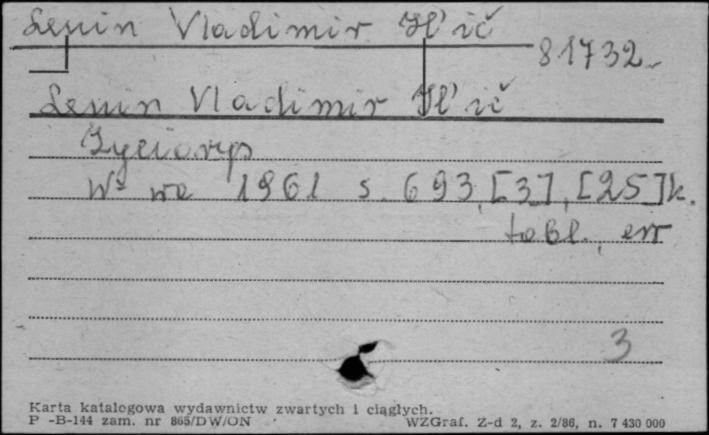 Lenin Vladimir Il'ič
81732
Lenin Vladimir Il'ič
Życiorys
W-wa 1961 s. 693, [3], [25] k.
tabl., err
3
Karta katalogowa wydawnictw zwartych i ciągłych.
P -B-144 zam. nr 865/DW/ON WZGraf. Z-d 2, z. 2/86, n. 7 430 000